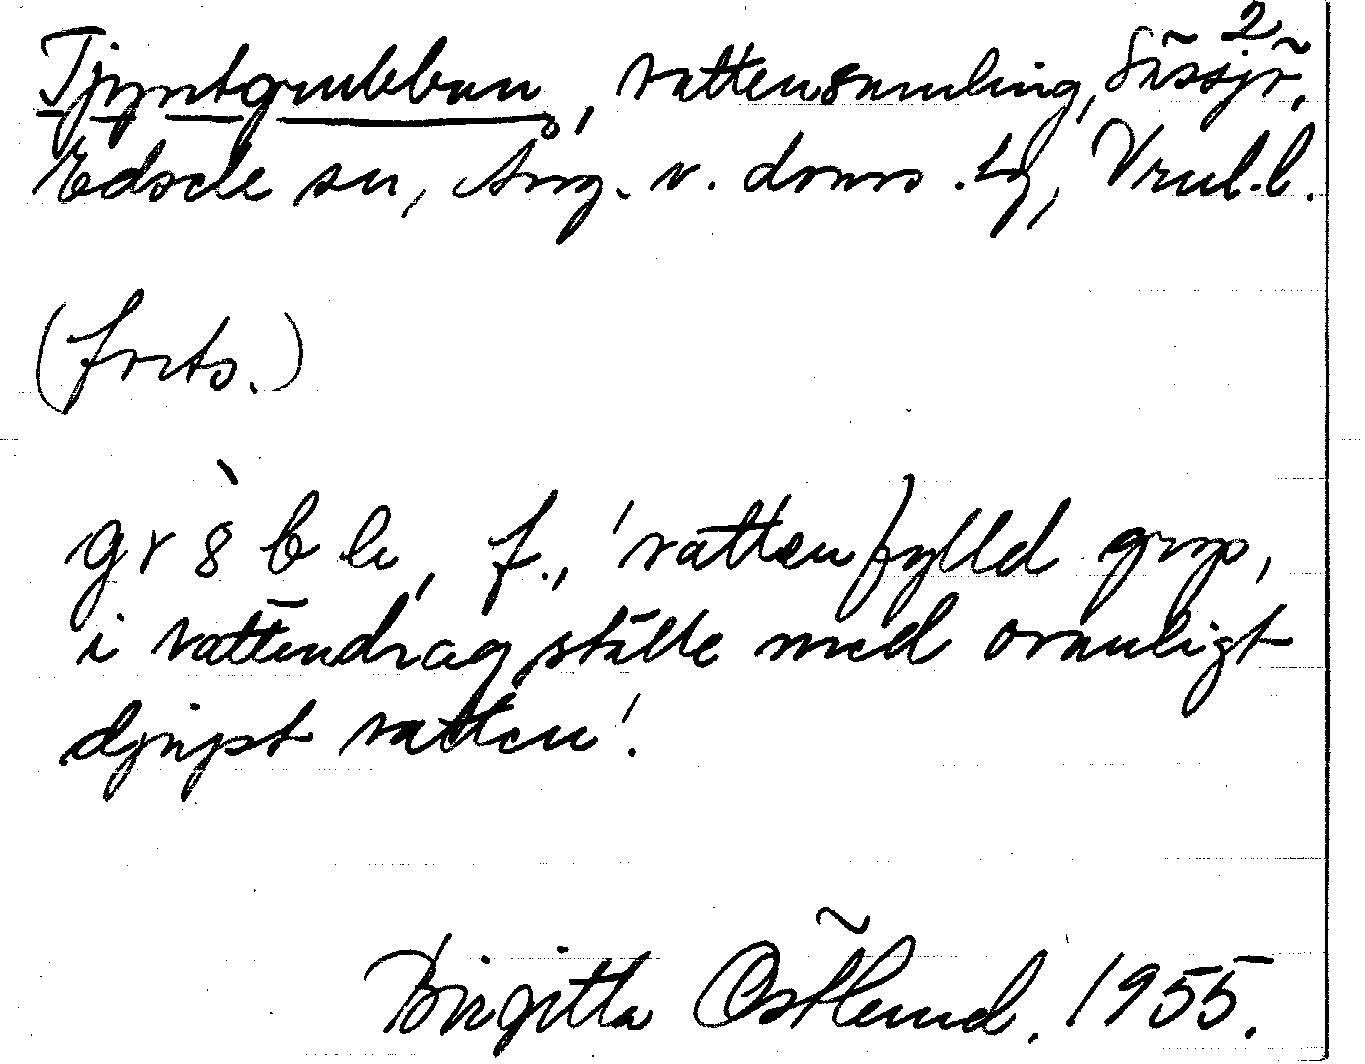 2
Tjyvtgrubban, vattensamling, Sässjö,
Edsele sn, Ång. v. doms. Lg, Vrml.l.
(forts.)
gr8̀bb, f., 'vattenfylld grop,
i vattendrag ställe med ovanligt
djupt vatten'.
Birgitta Östlund. 1955.